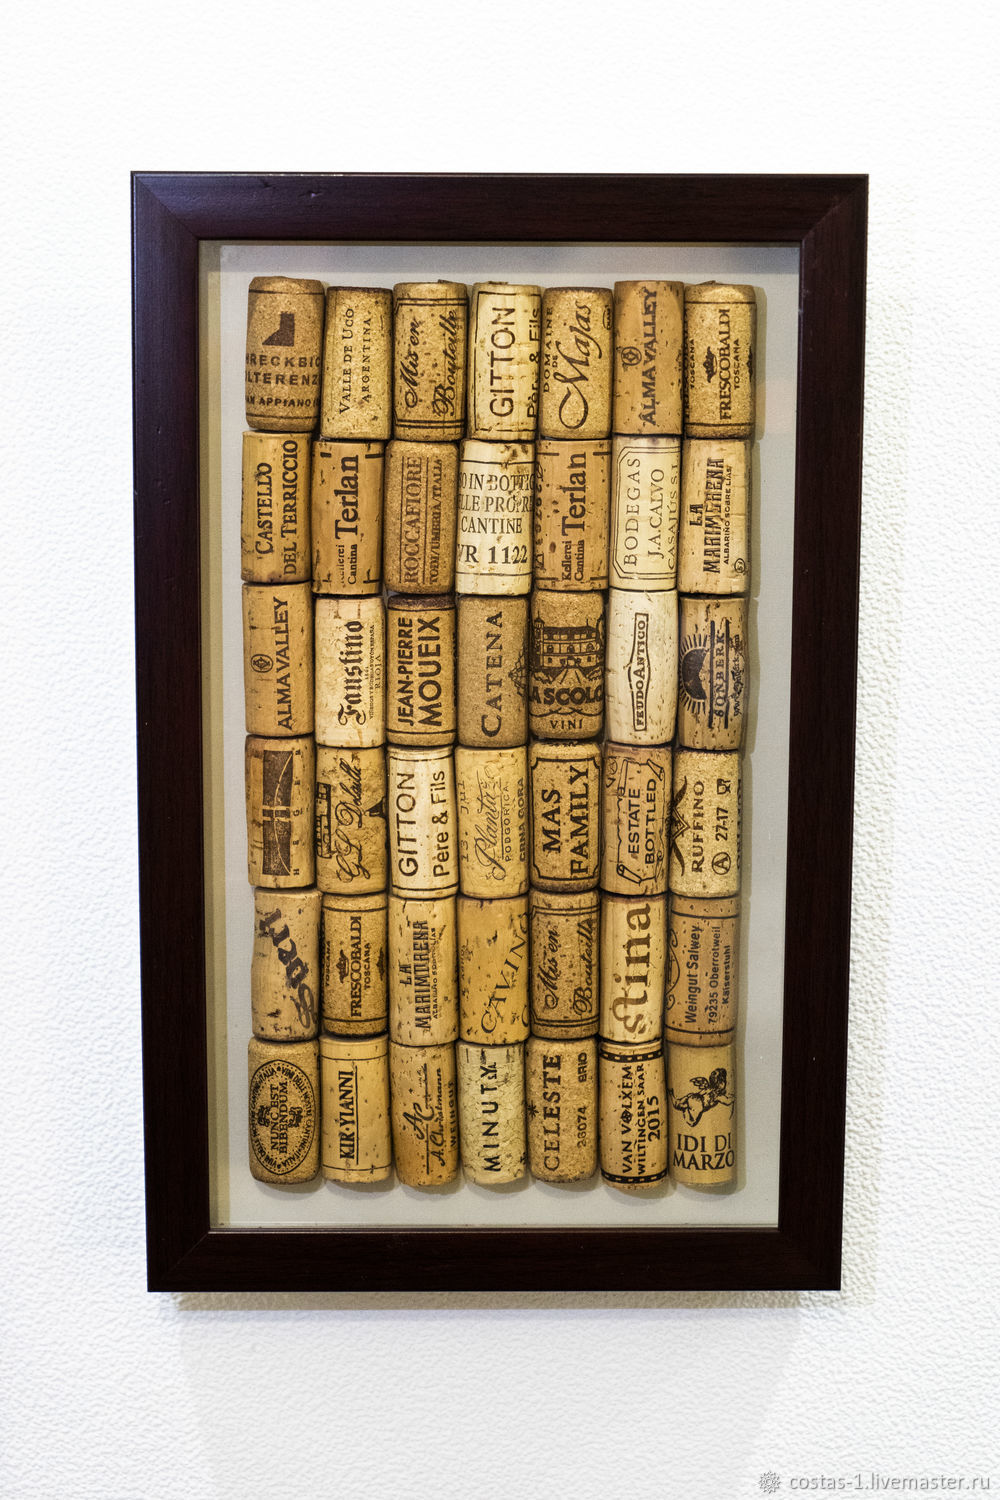 VALLE DE UCO
ARGENTINA
Mis en
Bouteille
GITTON
Père & Fils
DOMAINE
DE
Majas
ALMA VALLEY
FRESCOBALDI
TOSCANA
CASTELLO
DEL TERRICCIO
Kellerei
Cantina
Terlan
ROCCAFIORE
TODI/UMBRIA/ITALIA
CANTINE
VR 1122
Kellerei
Cantina
Terlan
BODEGAS
J.A.CALVO
CASAJUS S.L.
LA
MARIMORENA
ALBARIÑO SOBRE LÍAS
ALMA VALLEY
Faustino
RIOJA
JEAN-PIERRE
MOUEIX
CATENA
VINI
FEUDO ANTICO
SONBERK
GITTON
Père & Fils
Plantaže
PODGORICA
CRNA GORA
MAS
FAMILY
ESTATE
BOTTLED
RUFFINO
A 27-17
FRESCOBALDI
TOSCANA
LA
MARIMORENA
Mis en
Bouteille
stina
Weingut Salwey
79235 Oberrotweil
Kaiserstuhl
NUNC EST
BIBENDUM
KIR•YIANNI
A. Christmann
WEINGUT
MINUTY
CELESTE
26074 BRIO
VAN VOLXEM
WILTINGEN SAAR
2015
IDI DI
MARZO
costas-1.livemaster.ru